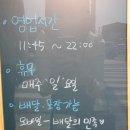 영업시간
11:45 ~ 22:00
휴무
매주 '일'요일
배달·포장 가능
모바일 - 배달의 민족